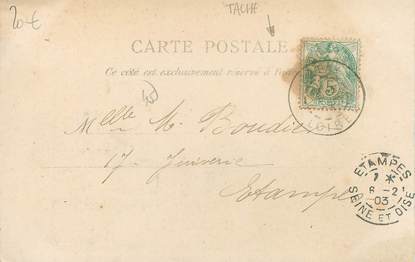 20€
TACHE
CARTE POSTALE
Ce côté est exclusivement réservé à l'adresse
5
LOIRET
Melle M. Boudie
17 Juiverie
Etampes
ETAMPES
1 *
6 - 2
03
SEINE ET OISE